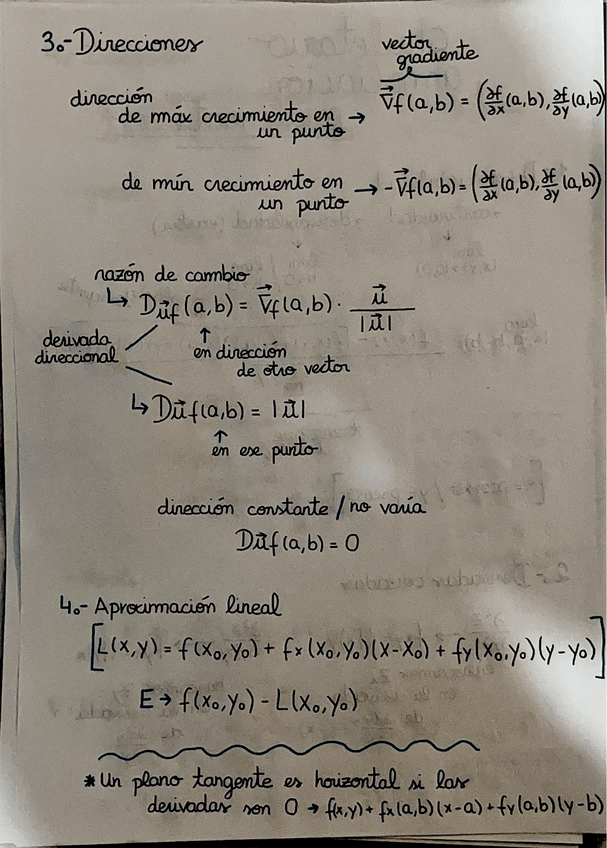 3.-Direcciones
vector
gradiente
dirección
de máx crecimiento en → ∇⃗f(a,b) = (∂f/∂x (a,b), ∂f/∂y (a,b))
un punto
de mín crecimiento en → -∇⃗f(a,b) = (∂f/∂x (a,b), ∂f/∂y (a,b))
un punto
razón de cambio
↳ Du⃗f(a,b) = ∇⃗f(a,b) · u⃗/|u⃗|
derivada
direccional
↑
en dirección
de otro vector
↳ Du⃗f(a,b) = |u⃗|
↑
en ese punto
dirección constante / no varía
Du⃗f(a,b) = 0
4.- Aproximación lineal
[L(x,y) = f(x₀,y₀) + fx(x₀,y₀)(x-x₀) + fy(x₀,y₀)(y-y₀)]
E → f(x₀,y₀) - L(x₀,y₀)
* Un plano tangente es horizontal si las
derivadas son 0 → f(x,y) + fx(a,b)(x-a) + fy(a,b)(y-b)